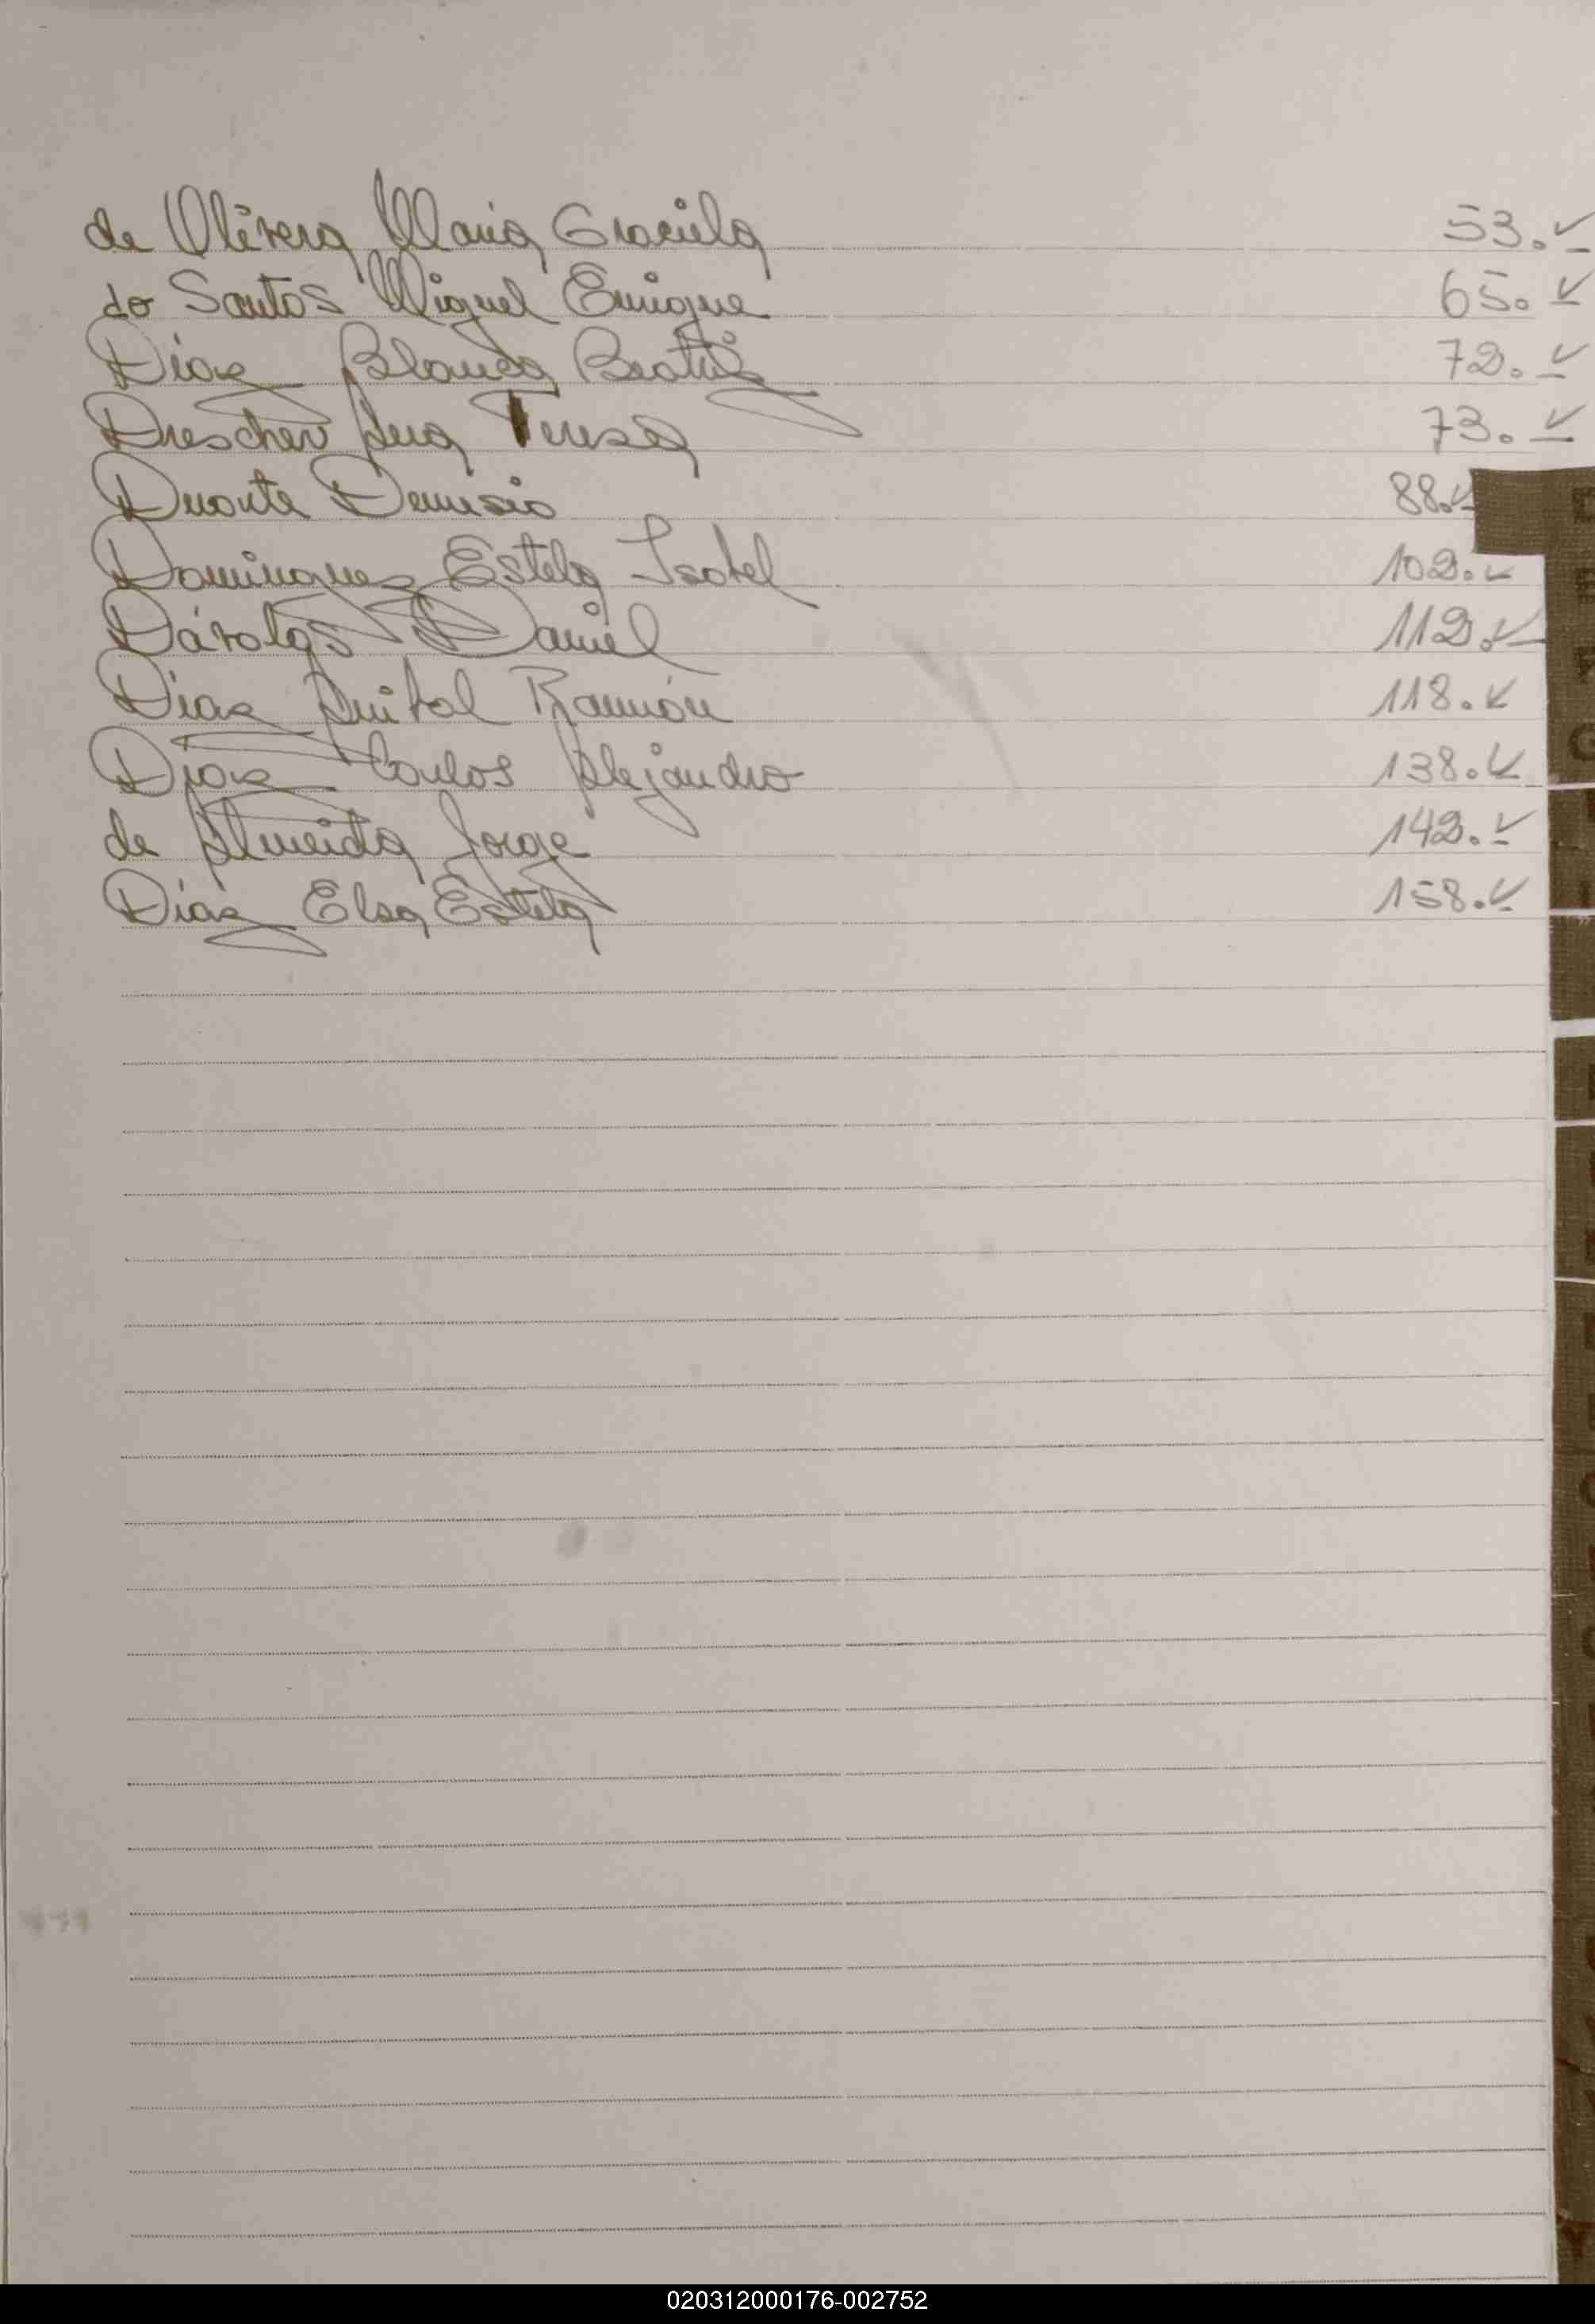 de Olivera Maria Graciela 53. ✓
do Santos Miguel Enrique 65. ✓
Diaz Blanca Beatriz 72. ✓
Drescher Ana Teresa 73. ✓
Duarte Denisio 88. ✓
Dominguez Estela Isabel 102. ✓
Dávalos Daniel 112. ✓
Diaz Anibal Ramón 118. ✓
Diaz Carlos Alejandro 138. ✓
de Almeida Jorge 142. ✓
Diaz Elsa Estela 158. ✓
020312000176-002752